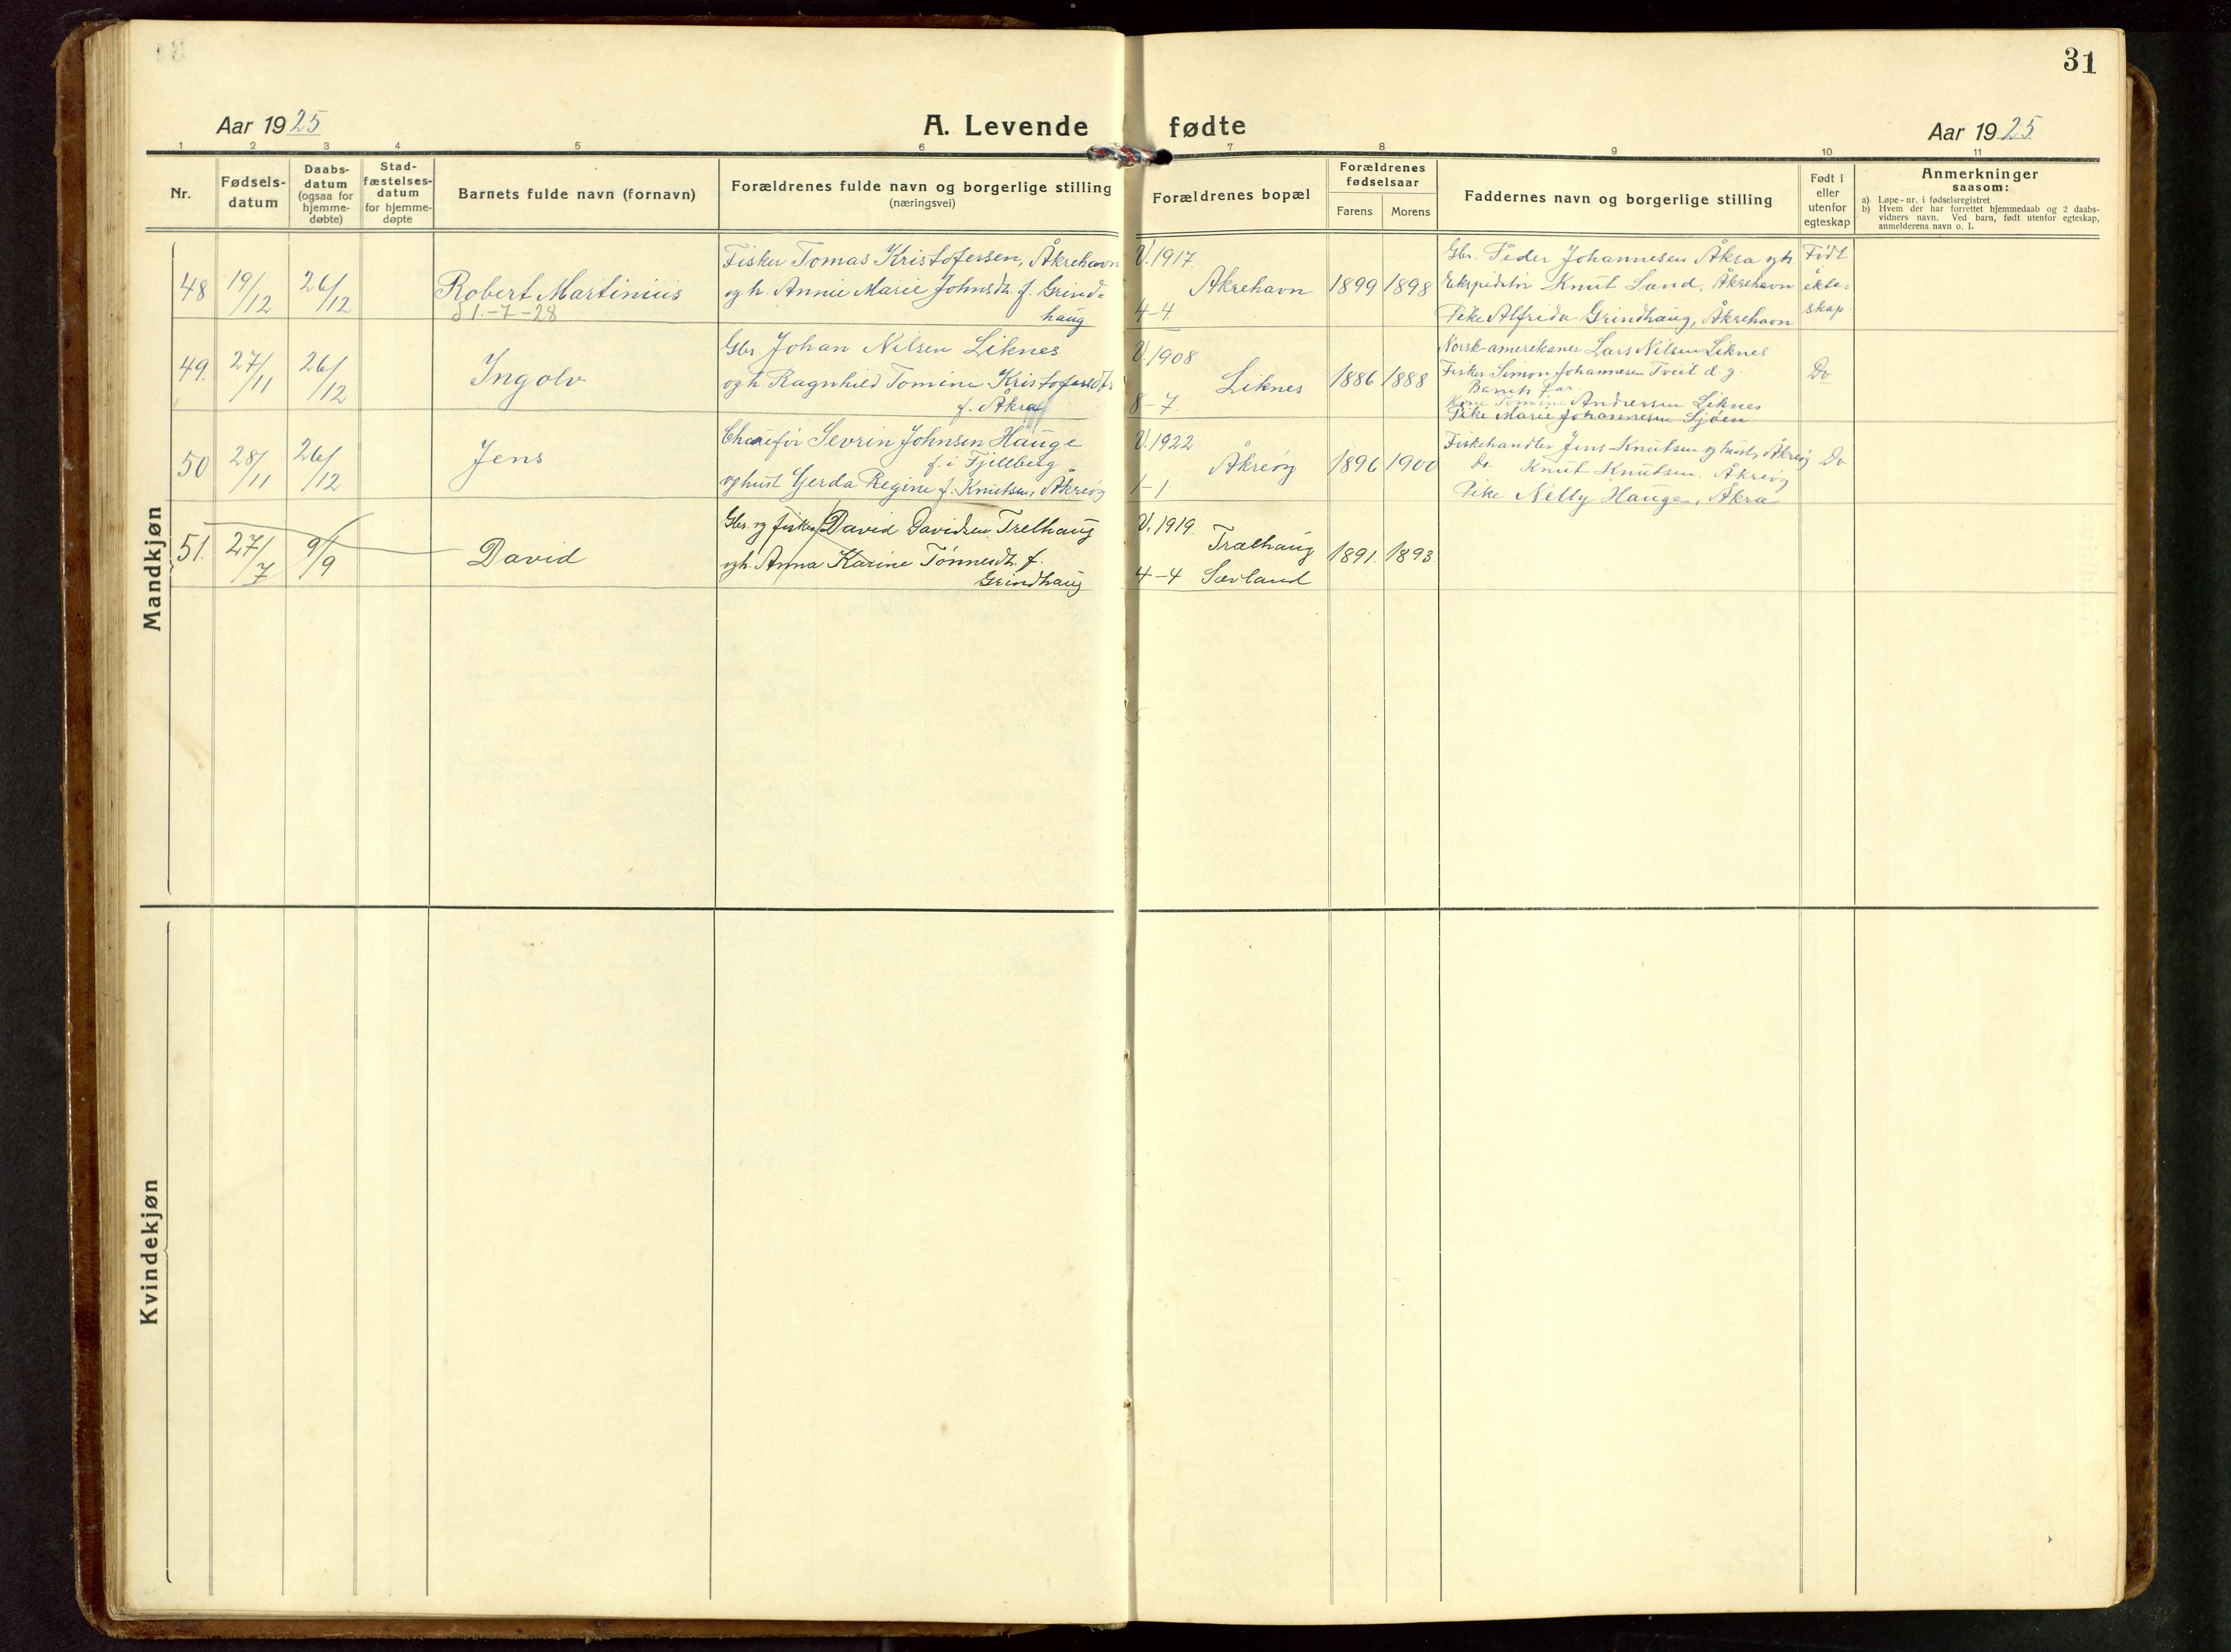 31
Aar 1925
A. Levende fødte
Aar 1925
1 2 3 4 5 6 7 8 9 10 11
Nr.
Fødsels-
datum
Daabs-
datum
(ogsaa for
hjemme-
døbte)
Stad-
fæstelses-
datum
for hjemme-
døpte
Barnets fulde navn (fornavn)
Forældrenes fulde navn og borgerlige stilling
(næringsvei)
Forældrenes bopæl
Forældrenes
fødselsaar
Farens Morens
Faddernes navn og borgerlige stilling
Født i
eller
utenfor
egteskap
Anmerkninger
saasom:
a) Løpe-nr. i fødselsregistret
b) Hvem der har forrettet hjemmedaab og 2 daabs-
vidners navn. Ved barn, født utenfor egteskap,
anmelderens navn o. l.
Mandkjøn
48
19/12
26/12
Robert Martinius
d 1.-7-28
Fisker Tomas Kristofersen, Åkrehavn
og h. Annie Marie Johnsdtr. f. Grind-
haug
V. 1917
Akrehavn
4-4
1899 1898
Gbr. Peder Johannesen Åkra og h.
Ekspeditør Knut Sand, Åkrehavn
Pike Alfrida Grindhaug, Åkrehavn
Født
ekte-
skap
49.
27/11
26/12
Ingolv
Gbr. Johan Nilsen Liknes
og h. Ragnhild Tomine Kristofersdtr
f. Åkra
V. 1908
Liknes
8-7.
1886 1888
Norsk-amerikaner Lars Nilsen Liknes
Fisker Simon Johannesen Tveit d. y.
Barnets far
Kone Tomine Andressen Liknes
Pike Marie Johannesen Sjøen
Do
50
28/11
26/12
Jens
Sevrin Johnsen Hauge
f. i Fjellberg
og hust Gerda Regine f. Knutsen, Åkreøy
V. 1922
Åkreøy
1-1
1896 1900
Fiskehandler Jens Knutsen og hust, Åkreøy
do. Knut Knutsen. Åkreøy
Pike Nelly Hauge, Åkra
Do
51.
27/7
9/9
David
Gbr. og fisker David Davidsen Trelhaug
og h. Anna Karine Tønnesdtr. f.
Grindhaug
V. 1919.
Trælhaug
4-4 Sævland
1891. 1893.
Kvindekjøn